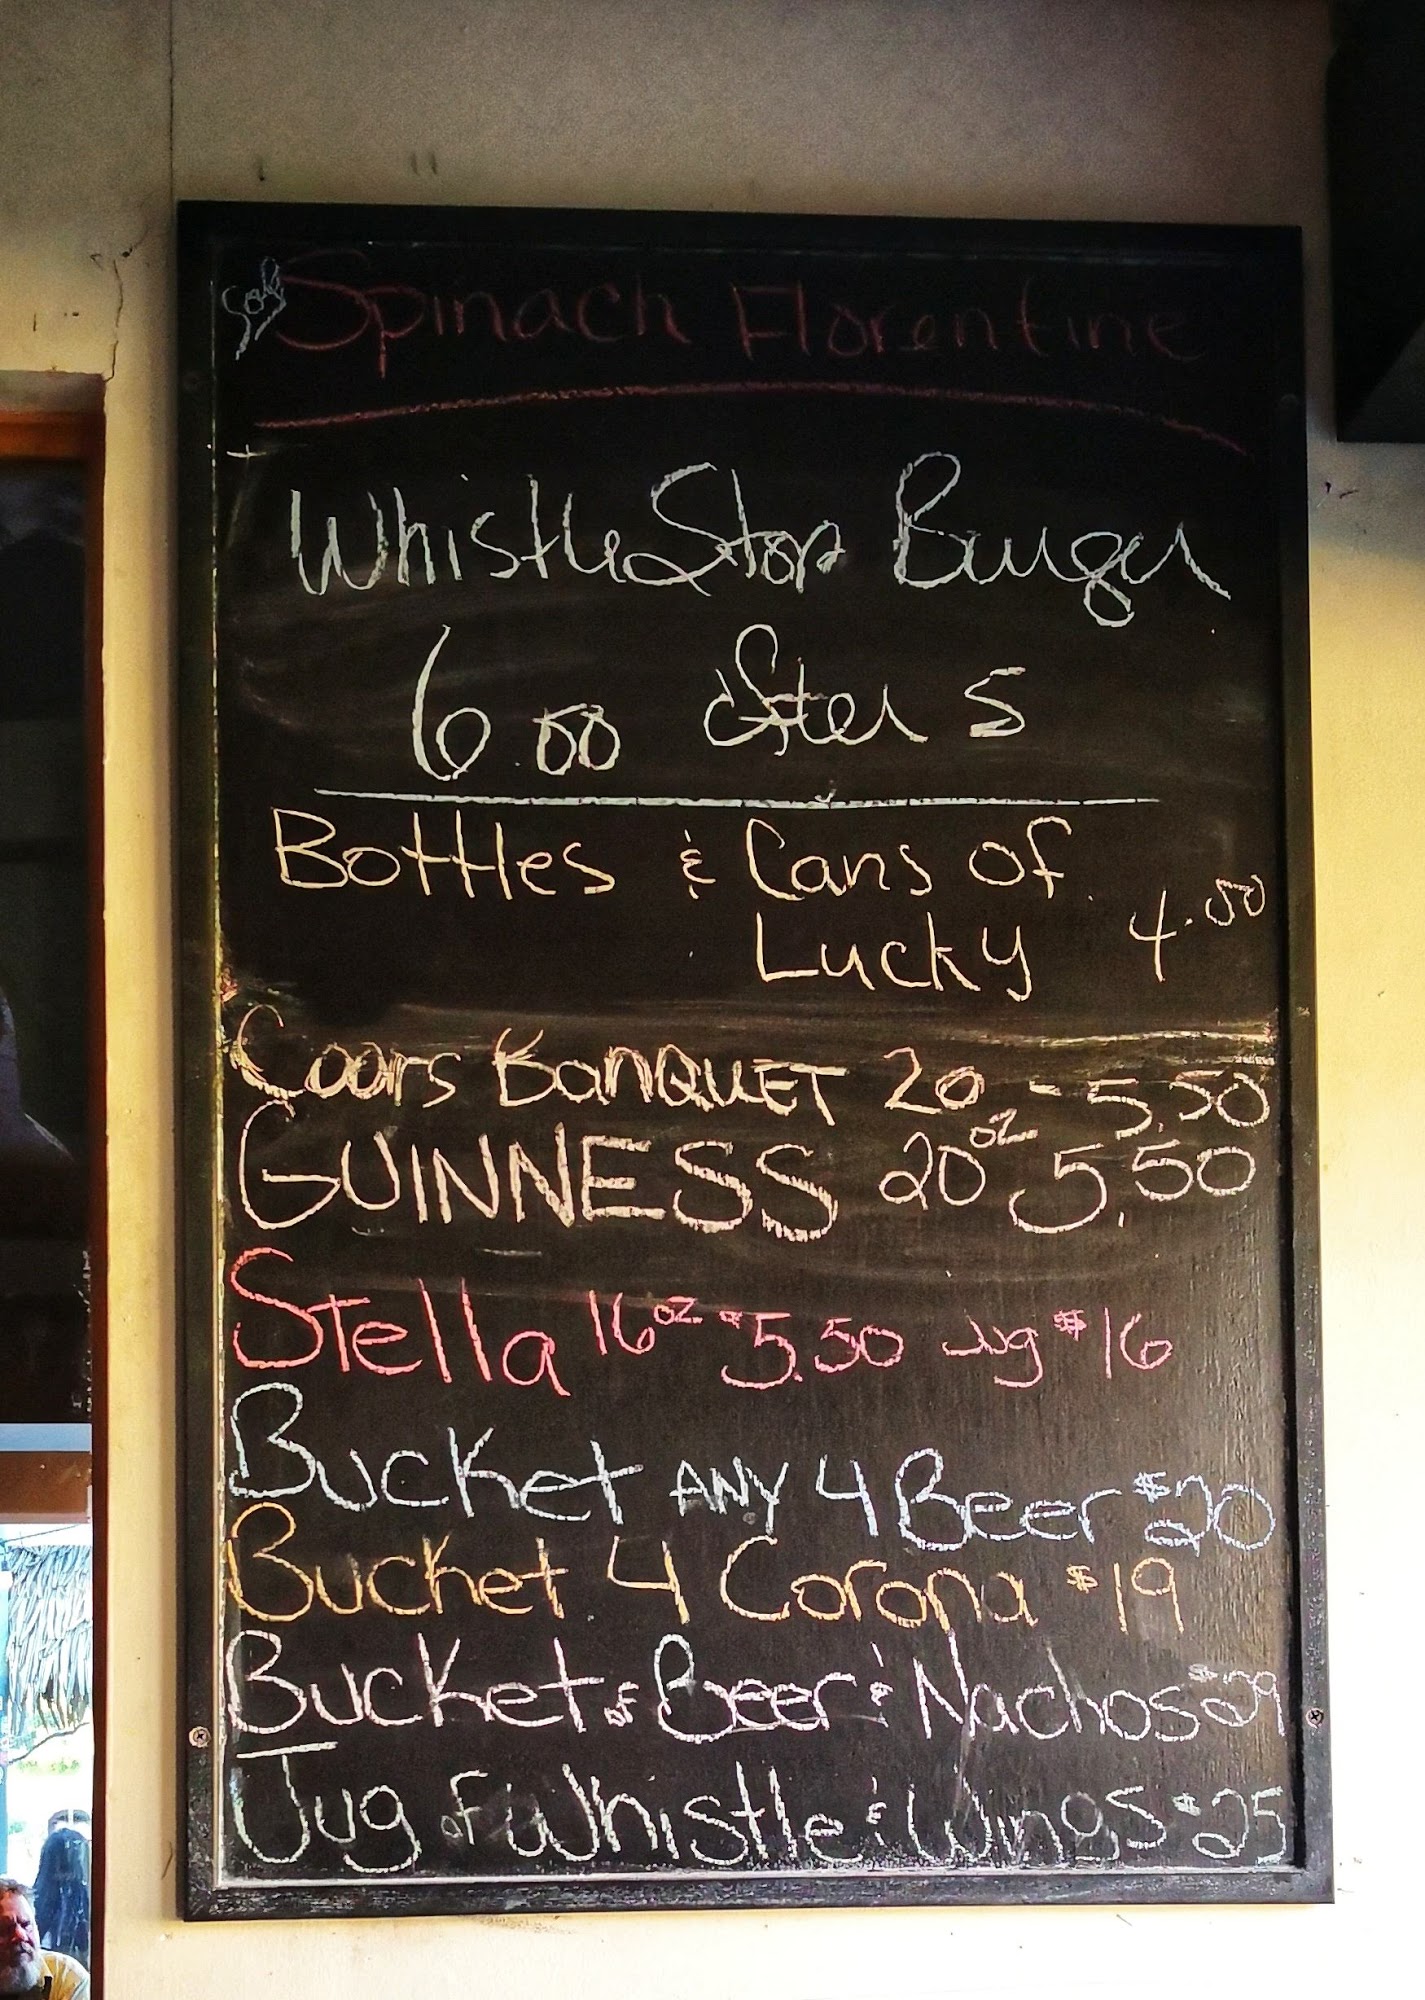 Soup Spinach Florentine
WhistleStop Burger
6.00 after 5
Bottles & Cans of
Lucky 4.50
Coors BANQUET 20 - 5.50
GUINNESS 20oz 5.50
Stella 16oz - 5.50 Jug $16
Bucket ANY 4 Beer $20
Bucket 4 Corona $19
Bucket of Beer & Nachos $29
Jug of Whistle & Wings $25